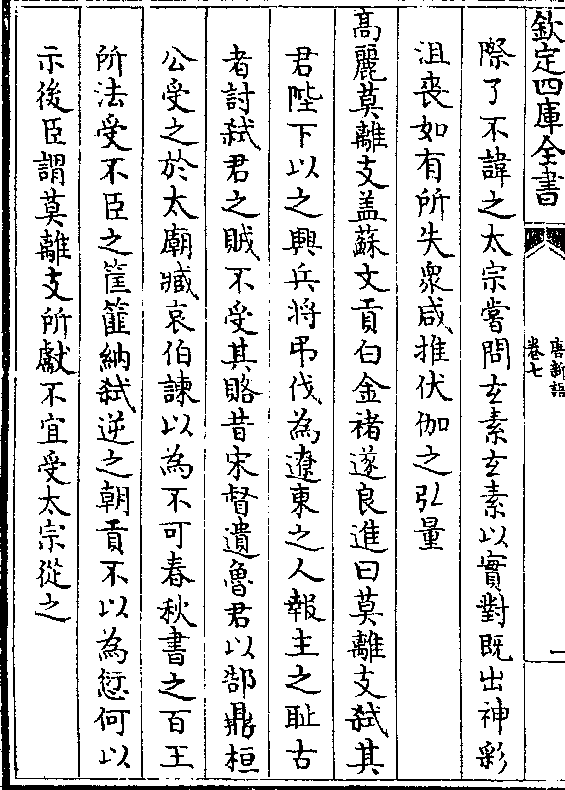 欽定四庫全書
唐新語
卷七
二
際了不諱之太宗嘗問玄素玄素以實對既出神彩
沮喪如有所失衆咸推伏伽之弘量
高麗莫離支盖蘇文貢白金褚遂良進曰莫離支弑其
君陛下以之興兵将弔伐為遼東之人報主之耻古
者討弑君之賊不受其賂昔宋督遺魯君以郜鼎桓
公受之於太廟臧哀伯諫以為不可春秋書之百王
所法受不臣之筐篚納弑逆之朝貢不以為愆何以
示後臣謂莫離支所獻不宜受太宗從之